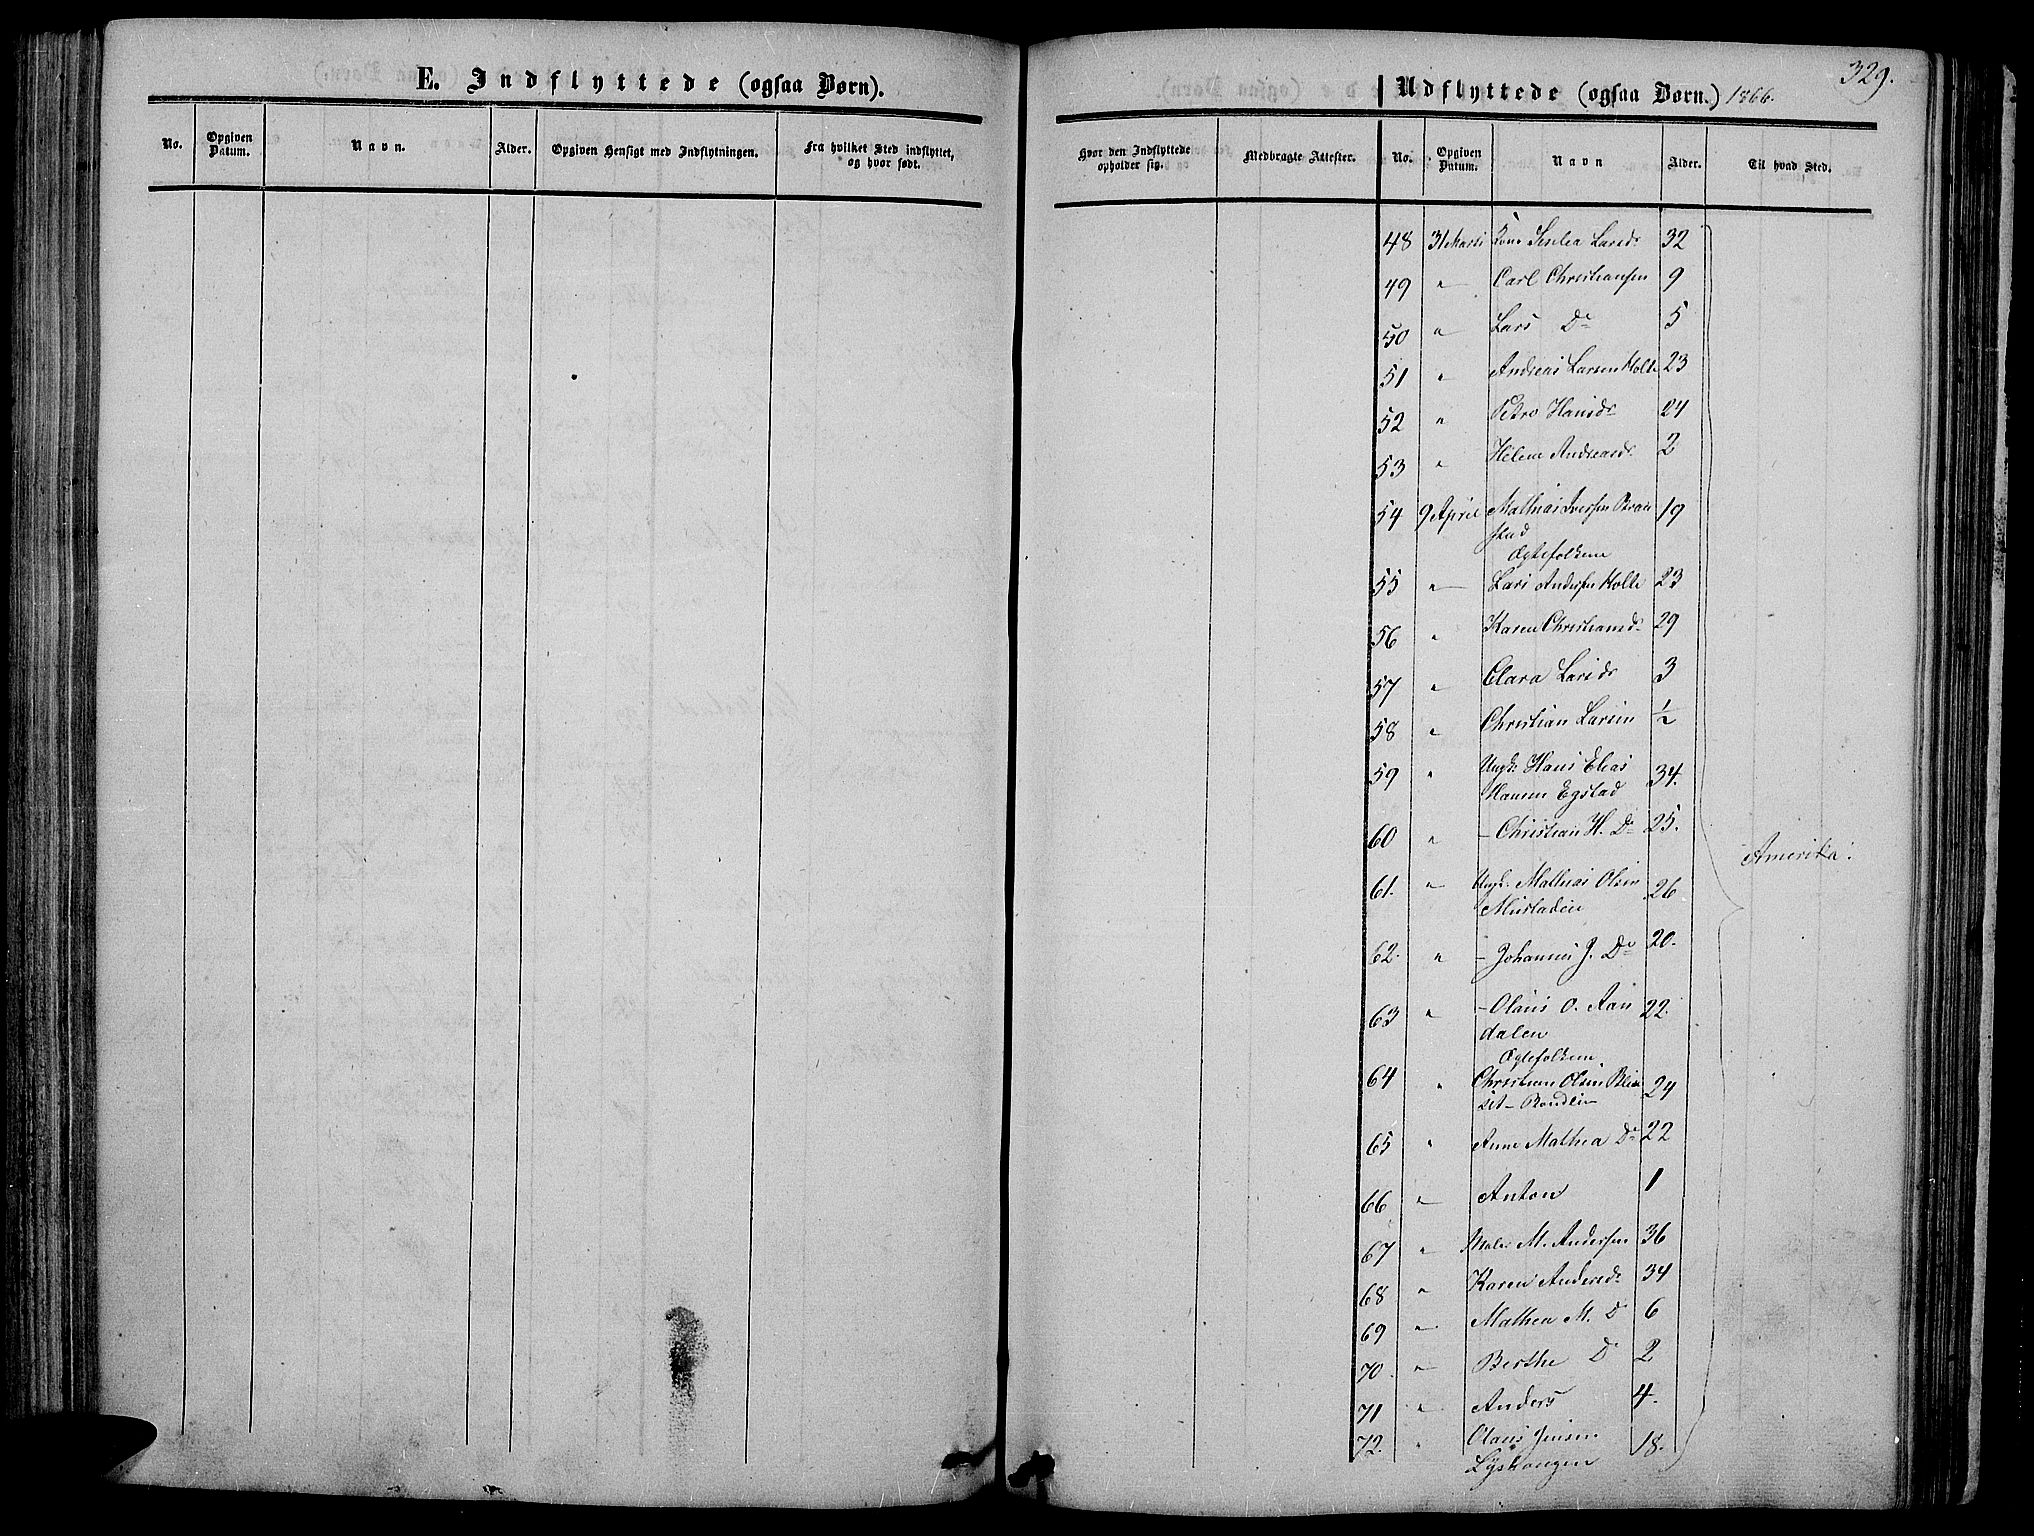 E. Indflyttede (ogsaa Børn).
No.
Opgiven Datum.
Navn.
Alder.
Opgiven Hensigt med Indflytningen.
Fra hvilket Sted indflyttet, og hvor født.
329.
Udflyttede (ogsaa Børn.) 1866.
Hvor den Indflyttede opholder sig.
Medbragte Attester.
No.
Opgiven Datum.
Navn
Alder.
Til hvad Sted.
48 31 Marts Kone Larsdr 32
49 " Carl Christiansen 9
50 " Lars Do 5
51 " Andreas Larsen Holte 23
52 " Petro Hansdr 24
53 " Helene Andreasdr 2
54 9 April Mathias Iversen 19
stad
Ægtefolkene
55 " Lars Andersen Holte 23
56 " Karen Christiansdr 29
57 " Clara Larsdr 3
58 " Christian Larsen 1/2
59 " Ungk. Hans Elias
Hansen Egstad 34.
60 " - Christian H. Do 25.
Amerika.
61. " Ungk. Mathias Olsen
Mustadeie 26
62. " - Johannes J. Do 20.
63 " - Olaus O. Aan
dalen 22.
Ægtefolkene
64 " Christian Olsen Blix
set- 24
65 " Anne Mathea Do 22
66 " Anton 1
67 " Maler M. Andersen 36
68 " Karen Andersdr 34
69 " Mathea M. D 6
70 " Berthe D 2
71 " Anders 4.
72. " Olaus Jensen
Lyshaugen 18.